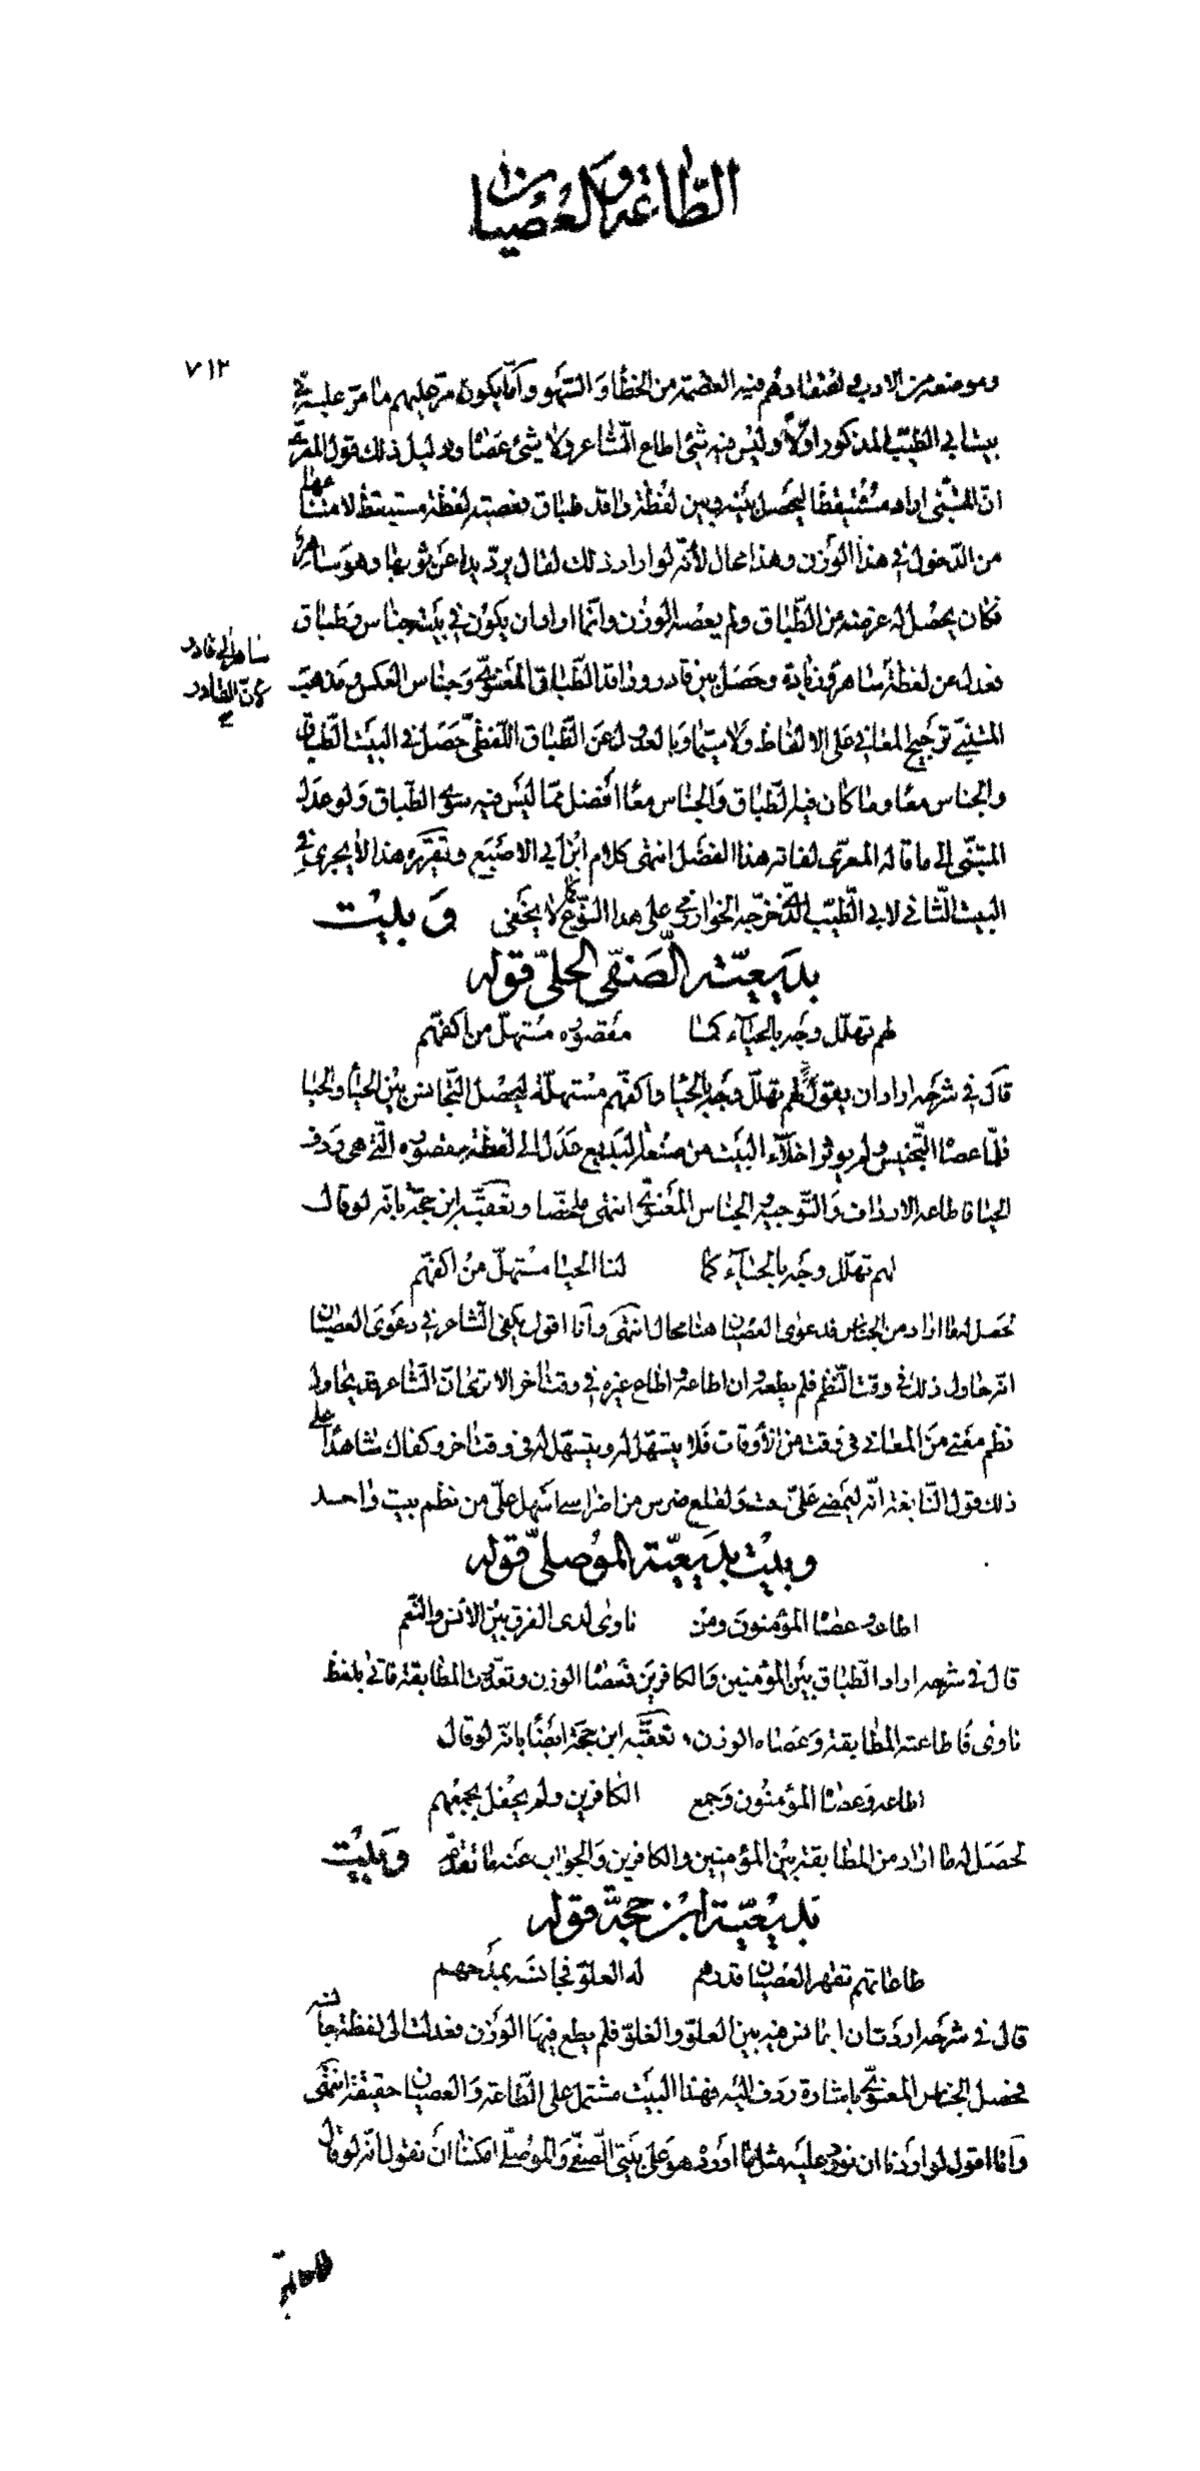 الطاعة والعصيان
٧١٢
وموضعه من الادب واعتقادهم فيه العصمة من الخطأ والسهو وانما يكون مر عليهم ما مر عليه في
بيت ابي الطيب المذكور اولا وليس فيه شئ اطاع الشاعر ولا شئ عصاه ودليل ذلك قول المعري
ان المتنبي اراد مستيقظا ليحصل بينه وبين لفظة راقد طباق فعصته لفظة مستيقظ لامتناعها
من الدخول في هذا الوزن وهذا محال لأنه لو اراد ذلك لقال يرد يدا عن ثوبها وهو ساهر
فكان يحصل له غرضه من الطباق ولم يعصه الوزن وانما اراد ان يكون في بيته جناس وطباق
فعدل عن لفظة ساهر الى قادر
لأن القادر
ساهر وزيادة وحصل بين قادر وراقد الطباق المعنوي وجناس العكس ومذهب
المتنبي ترجيح المعاني على الالفاظ ولا سيما وبالعدول عن الطباق اللفظي حصل في البيت الطباق
والجناس معا وما كان فيه الطباق والجناس معا افضل مما ليس فيه سوى الطباق ولو عدل
المتنبي الى ما قاله المعري لفاته هذا الفضل انتهى كلام ابن ابي الاصبع وتقريره هذا لا يجري في
البيت الثاني لابي الطيب الذي خرجه الخوارزمي على هذا النوع كما لا يخفى وبيت
بديعية الصفي الحلي قوله
لهم تهلل وجه بالحياء كما مقصوره مستهل من اكفهم
قال في شرحه اراد ان يقول لهم تهلل وجه بالحيا واكفهم مستهلة ليحصل التجانس بين الحياء والحيا
فلما عصاه التجنيس ولم يوثر اخلاء البيت من صنعة البديع عدل الى لفظة مقصوره التي هي ردف
الحيا فاطاعه الارداف والتوجيه والجناس المعنوي انتهى ملخصا وتعقبه ابن حجة بانه لو قال
لهم تهلل وجه بالحياء كما لنا الحيا مستهل من اكفهم
لحصل له ما اراد من الجناس فدعوى العصيان هنا محال انتهى وانا اقول يكفي الشاعر في دعوى العصيان
انه حاول ذلك في وقت النظم فلم يطعه وان اطاعه واطاع غيره في وقت اخر الا ترى ان الشاعر قد يحاول
نظم معنى من المعاني في وقت من الأوقات فلا يتسهل له ويتسهل له في وقت اخر وكفاك شاهدا على
ذلك قول النابغة انه ليمضي علي وقت ولقلع ضرس من اضراسي اسهل علي من نظم بيت واحد
وبيت بديعية الموصلي قوله
اطاعه وعصاه المؤمنون ومن ناوى لدى الفرق بين الانس والنعم
قال في شرحه اراد الطباق بين المؤمنين والكافرين فعصاه الوزن وتعذرت المطابقة فاتى بلفظ
ناوى فاطاعته المطابقة وعصاه الوزن وتعقبه ابن حجة ايضا بانه لو قال
اطاعه وعصاه المؤمنون وجمع الكافرين ولم يحفل بجمعهم
لحصل له ما اراد من المطابقة بين المؤمنين والكافرين والجواب عنه ما تقدم وبيت
بديعية ابن حجة قوله
طاعاتهم تقهر العصيان قدرهم له العلو فجانسه بمدحهم
قال في شرحه اردت ان اجانس فيه بين العلو والغلو فلم يطع فيها الوزن فعدلت الى لفظة جانسه
فحصل الجناس المعنوي باشارة ردف اليه فهذا البيت مشتمل على الطاعة والعصيان حقيقة انتهى
وانا اقول لو اردنا ان نورد عليه مثل ما اورده هو على بيتي الصفي والموصلي امكننا ان نقول انه لو قال